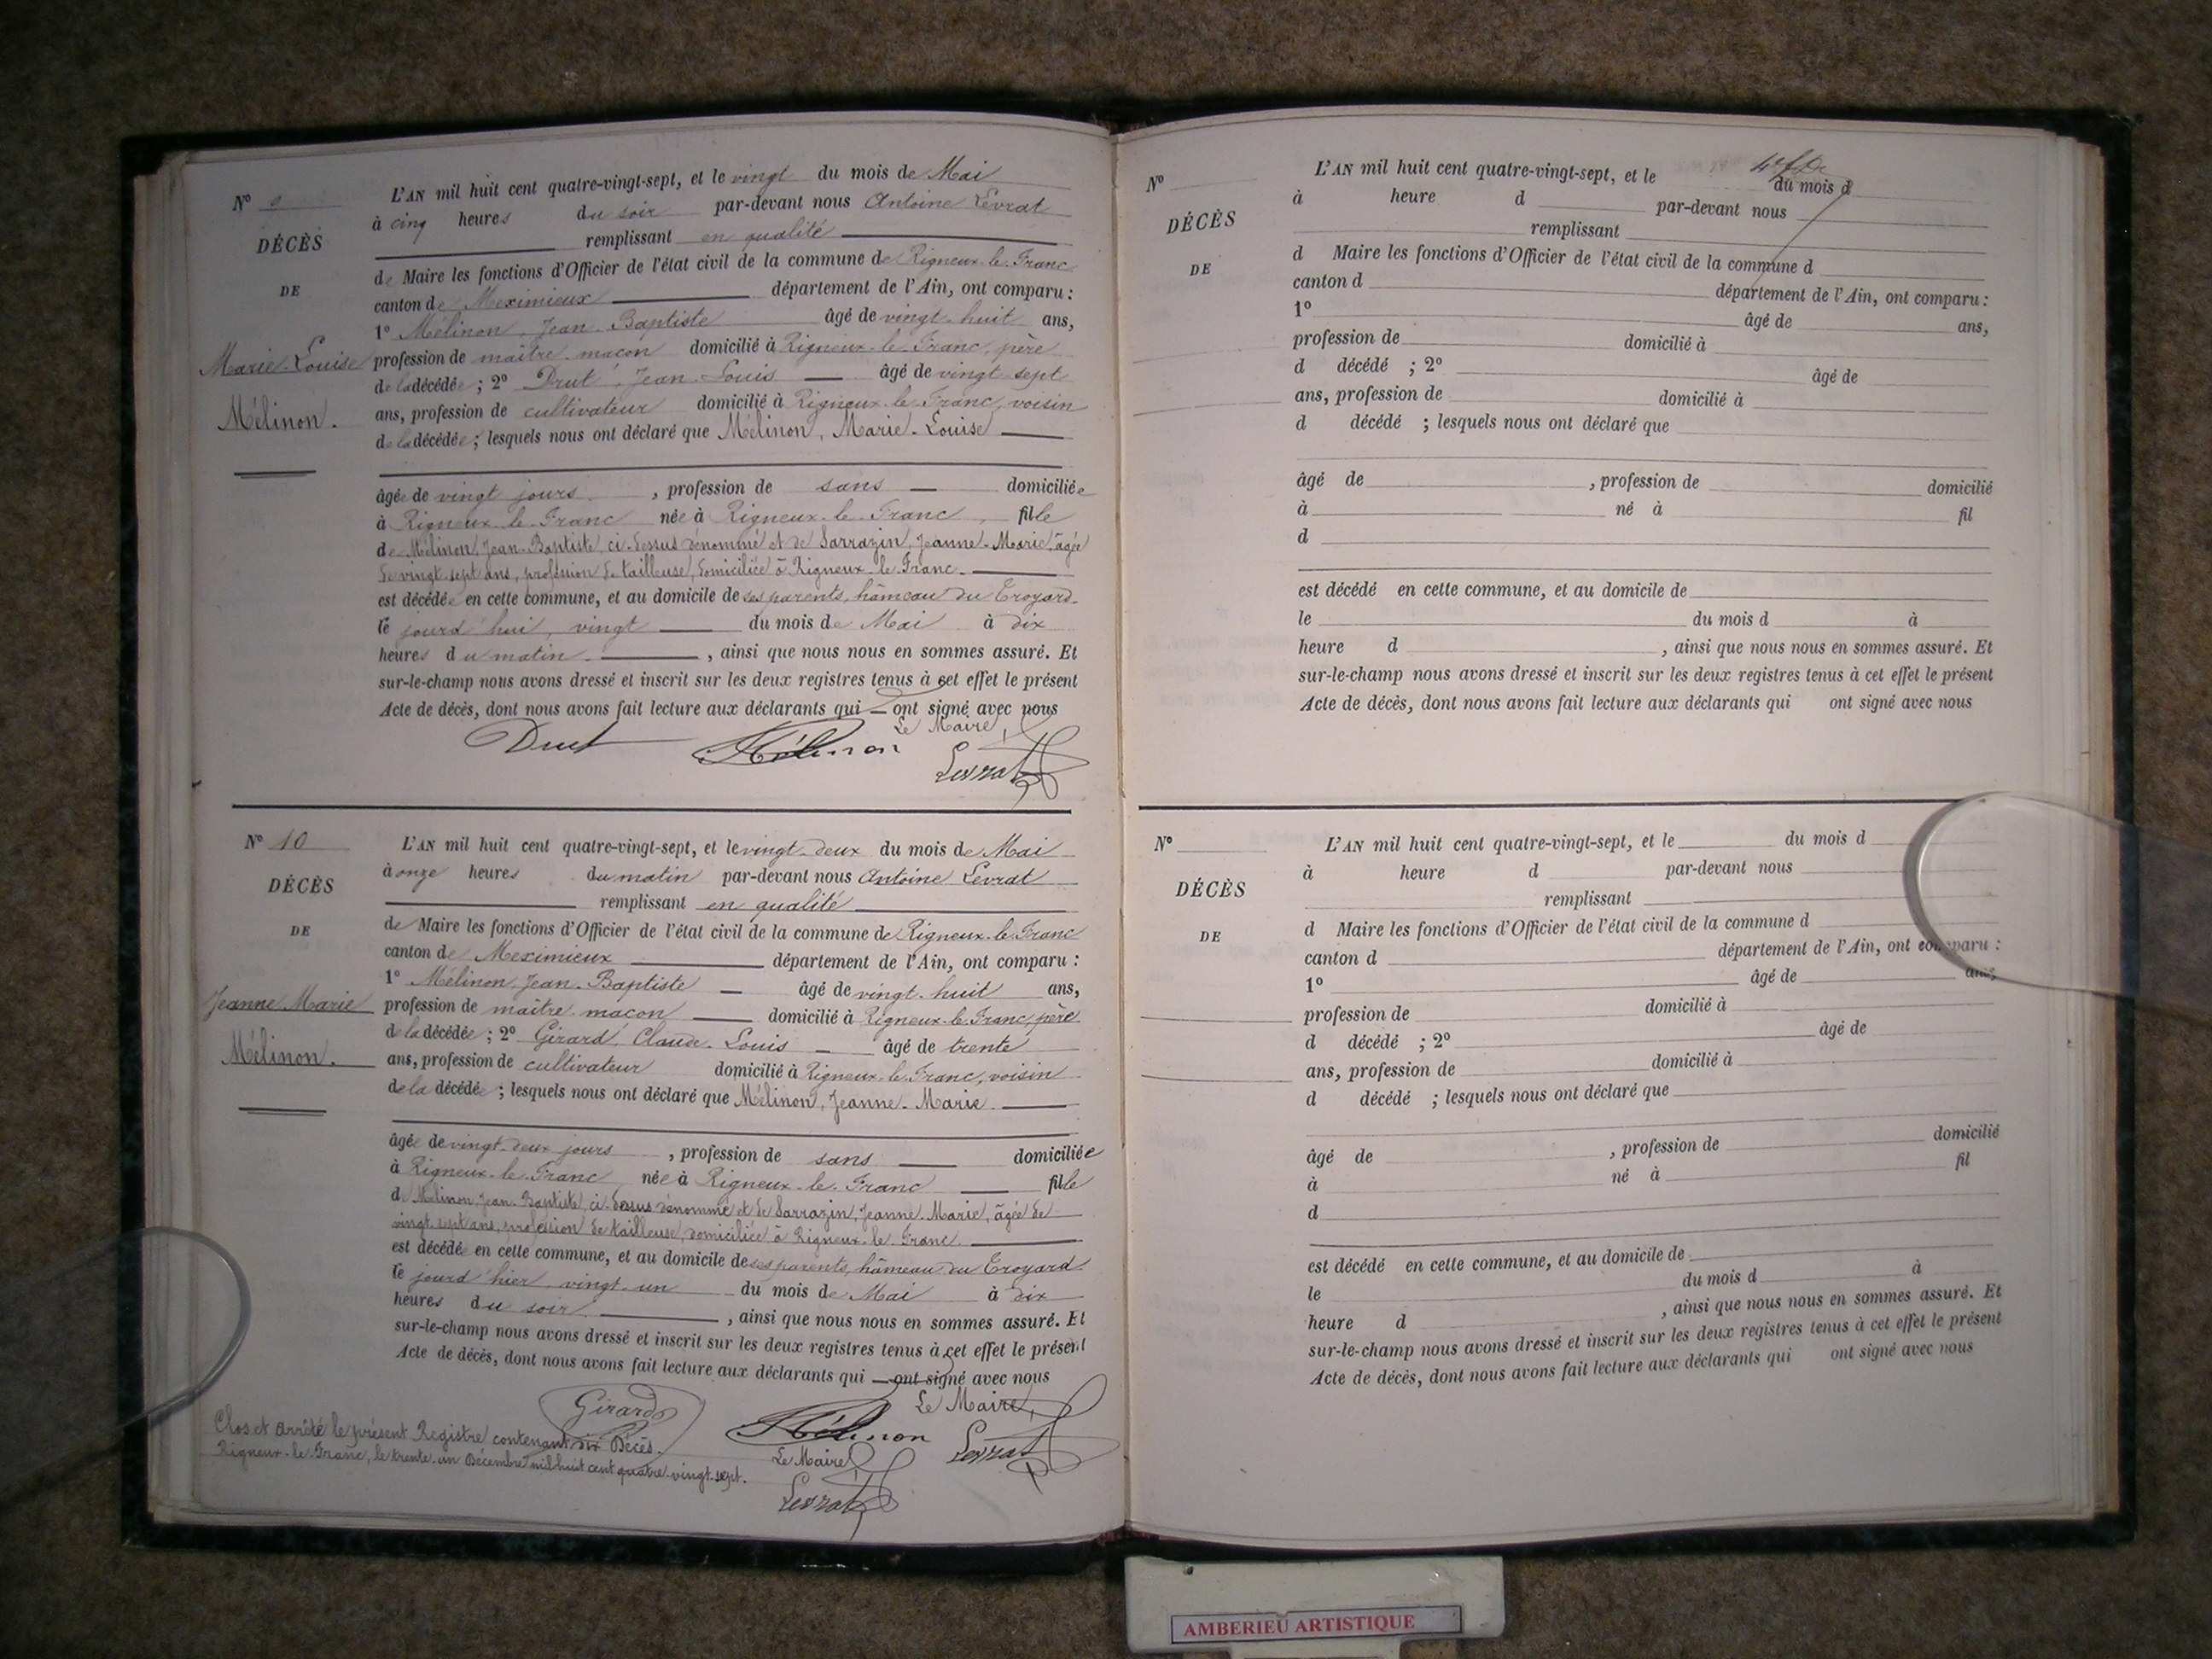 Nº 9
DÉCÈS
DE
Marie-Louise
Mélinon.
L'AN mil huit cent quatre-vingt-sept, et le vingt du mois de Mai
à cinq heures du soir par-devant nous Antoine Levrat
remplissant en qualité
de Maire les fonctions d'Officier de l'état civil de la commune de Rigneux-le-Franc
canton de Meximieux département de l'Ain, ont comparu :
1º Mélinon, Jean-Baptiste âgé de vingt-huit ans,
profession de maître-maçon domicilié à Rigneux-le-Franc, père
de la décédée ; 2º Drut, Jean-Louis âgé de vingt sept
ans, profession de cultivateur domicilié à Rigneux-le-Franc, voisin
de la décédée ; lesquels nous ont déclaré que Mélinon, Marie-Louise
âgée de vingt jours , profession de sans domiciliée
à Rigneux-le-Franc née à Rigneux-le-Franc, fille
de Mélinon, Jean-Baptiste, ci-dessus dénommé et de Sarrazin, Jeanne-Marie, âgée
de vingt-sept ans, profession de tailleuse, domiciliée à Rigneux-le-Franc.
est décédée en cette commune, et au domicile de ses parents, hâmeau du Croyard.
le jourd'hui, vingt du mois de Mai à dix
heures du matin. , ainsi que nous nous en sommes assuré. Et
sur-le-champ nous avons dressé et inscrit sur les deux registres tenus à cet effet le présent
Acte de décès, dont nous avons fait lecture aux déclarants qui ont signé avec nous
Le Maire,
Drut Mélinon Levrat
Nº 10
DÉCÈS
DE
Jeanne Marie
Mélinon.
L'AN mil huit cent quatre-vingt-sept, et le vingt-deux du mois de Mai
à onze heures du matin par-devant nous Antoine Levrat
remplissant en qualité
de Maire les fonctions d'Officier de l'état civil de la commune de Rigneux-le-Franc
canton de Meximieux département de l'Ain, ont comparu :
1º Mélinon, Jean-Baptiste âgé de vingt-huit ans,
profession de maître-maçon domicilié à Rigneux-le-Franc, père
de la décédée ; 2º Girard, Claude-Louis âgé de trente
ans, profession de cultivateur domicilié à Rigneux-le-Franc, voisin
de la décédée ; lesquels nous ont déclaré que Mélinon, Jeanne-Marie.
âgée de vingt-deux jours , profession de sans domiciliée
à Rigneux-le-Franc, née à Rigneux-le-Franc fille
de Mélinon, Jean-Baptiste, ci-dessus dénommé et de Sarrazin, Jeanne-Marie, âgée de
vingt-sept ans, profession de tailleuse, domiciliée à Rigneux-le-Franc.
est décédée en cette commune, et au domicile de ses parents, hâmeau du Croyard
le jourd'hier, vingt-un du mois de Mai à dix
heures du soir. , ainsi que nous nous en sommes assuré. Et
sur-le-champ nous avons dressé et inscrit sur les deux registres tenus à cet effet le présent
Acte de décès, dont nous avons fait lecture aux déclarants qui ont signé avec nous
Le Maire,
Girard Mélinon Levrat
Clos et arrêté le présent Registre contenant dix Décès.
Rigneux-le-Franc, le trente-un Décembre mil huit cent quatre-vingt-sept.
Le Maire
Levrat
Nº
DÉCÈS
DE
L'AN mil huit cent quatre-vingt-sept, et le du mois d
à heure d par-devant nous
remplissant
d Maire les fonctions d'Officier de l'état civil de la commune d
canton d département de l'Ain, ont comparu :
1º âgé de ans,
profession de domicilié à
d décédé ; 2º âgé de
ans, profession de domicilié à
d décédé ; lesquels nous ont déclaré que
âgé de , profession de domicilié
à né à fil
d
est décédé en cette commune, et au domicile de
le du mois d à
heure d , ainsi que nous nous en sommes assuré. Et
sur-le-champ nous avons dressé et inscrit sur les deux registres tenus à cet effet le présent
Acte de décès, dont nous avons fait lecture aux déclarants qui ont signé avec nous
Nº
DÉCÈS
DE
L'AN mil huit cent quatre-vingt-sept, et le du mois d
à heure d par-devant nous
remplissant
d Maire les fonctions d'Officier de l'état civil de la commune d
canton d département de l'Ain, ont comparu :
1º âgé de ans,
profession de domicilié à
d décédé ; 2º âgé de
ans, profession de domicilié à
d décédé ; lesquels nous ont déclaré que
âgé de , profession de domicilié
à né à fil
d
est décédé en cette commune, et au domicile de
le du mois d à
heure d , ainsi que nous nous en sommes assuré. Et
sur-le-champ nous avons dressé et inscrit sur les deux registres tenus à cet effet le présent
Acte de décès, dont nous avons fait lecture aux déclarants qui ont signé avec nous
AMBERIEU ARTISTIQUE